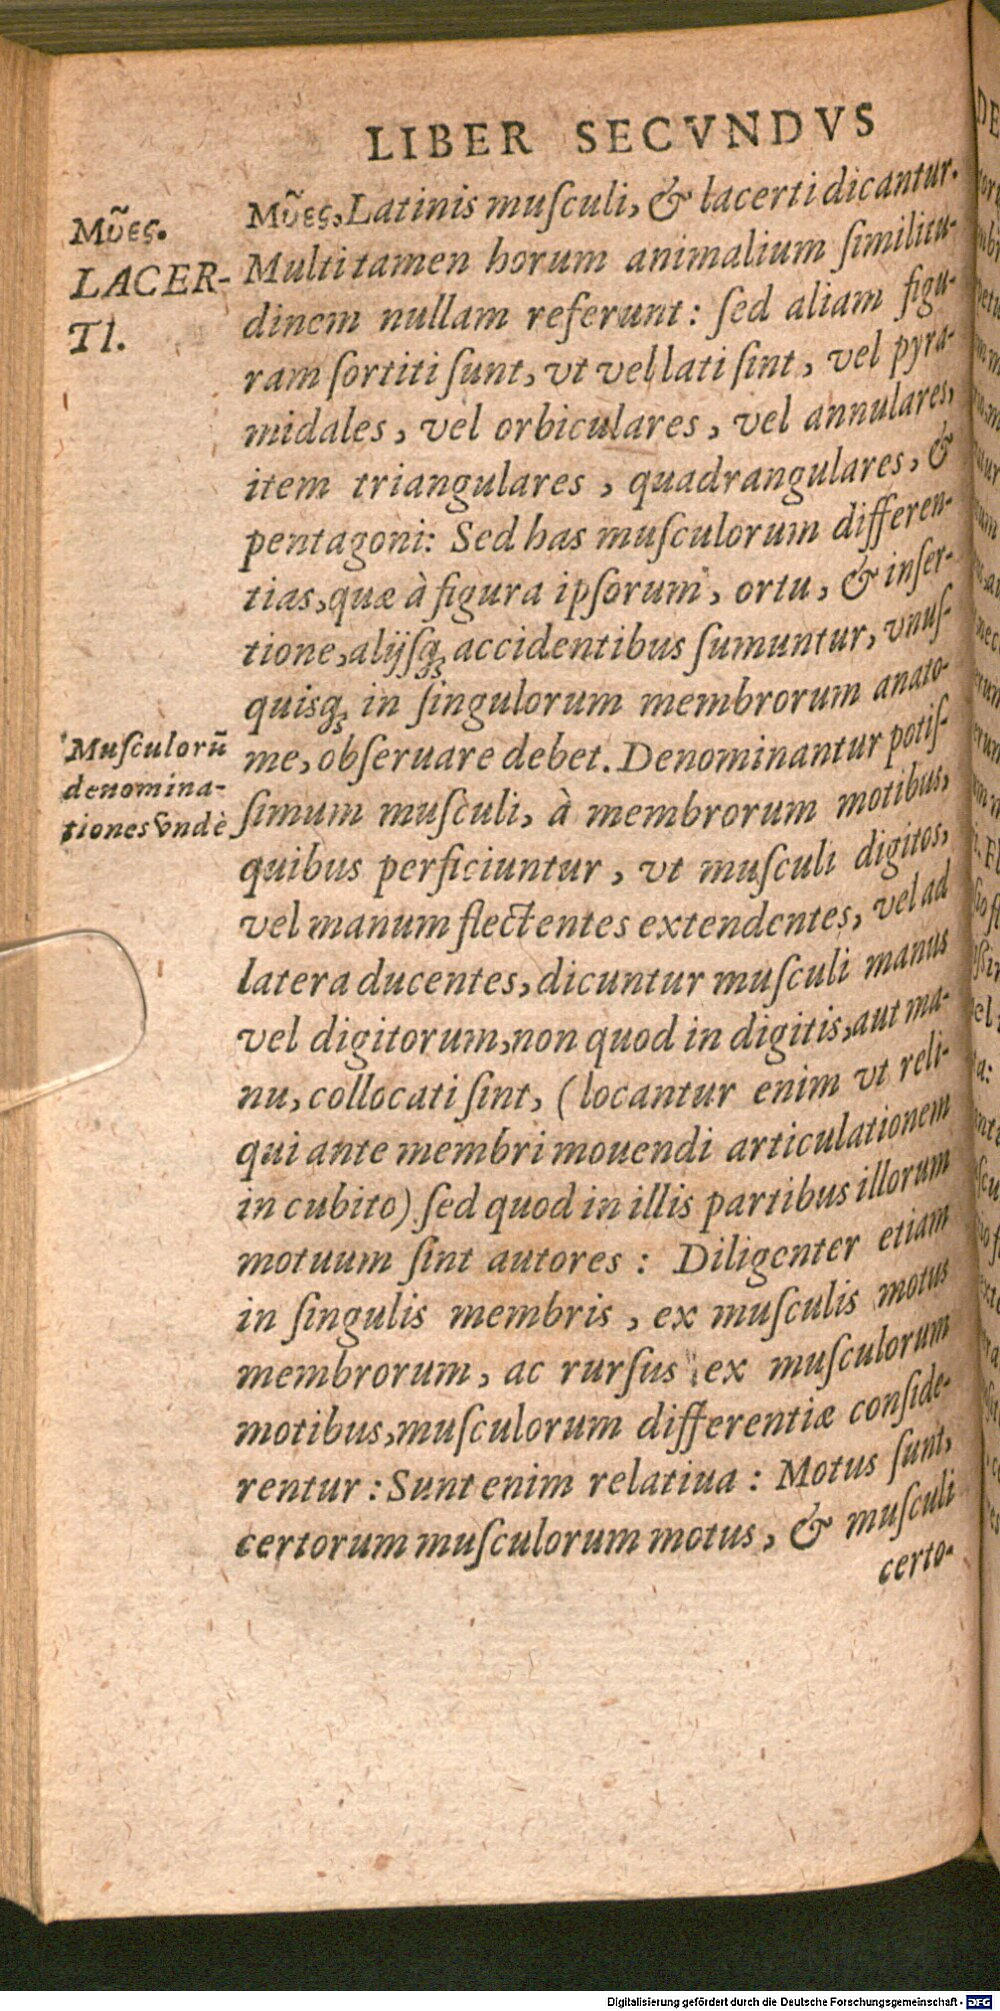 LIBER SECVNDVS
Mῦες.
LACER-
TI.
Mῦες, Latinis muſculi, & lacerti dicantur.
Multi tamen horum animalium ſimilitu-
dinem nullam referunt: ſed aliam figu-
ram ſortiti ſunt, vt vel lati ſint, vel pyra-
midales, vel orbiculares, vel annulares,
item triangulares, quadrangulares, &
pentagoni: Sed has muſculorum differen-
tias, quæ à figura ipſorum, ortu, & inſer-
tione, alijſq; accidentibus ſumuntur, vnuſ-
quisq; in ſingulorum membrorum anato-
me, obſeruare debet. Denominantur potiſ-
ſimum muſculi, à membrorum motibus,
quibus perficiuntur, vt muſculi digitos,
vel manum flectentes extendentes, vel ad
latera ducentes, dicuntur muſculi manus
vel digitorum, non quod in digitis, aut ma-
nu, collocati ſint, (locantur enim vt reli-
qui ante membri mouendi articulationem
in cubito) ſed quod in illis partibus illorum
motuum ſint autores: Diligenter etiam
in ſingulis membris, ex muſculis motus
membrorum, ac rurſus ex muſculorum
motibus, muſculorum differentiæ conſide-
rentur: Sunt enim relatiua: Motus ſunt,
certorum muſculorum motus, & muſculi
certo-
Muſculorũ
denomina-
tiones vndè
Digitalisierung gefördert durch die Deutsche Forschungsgemeinschaft - DFG